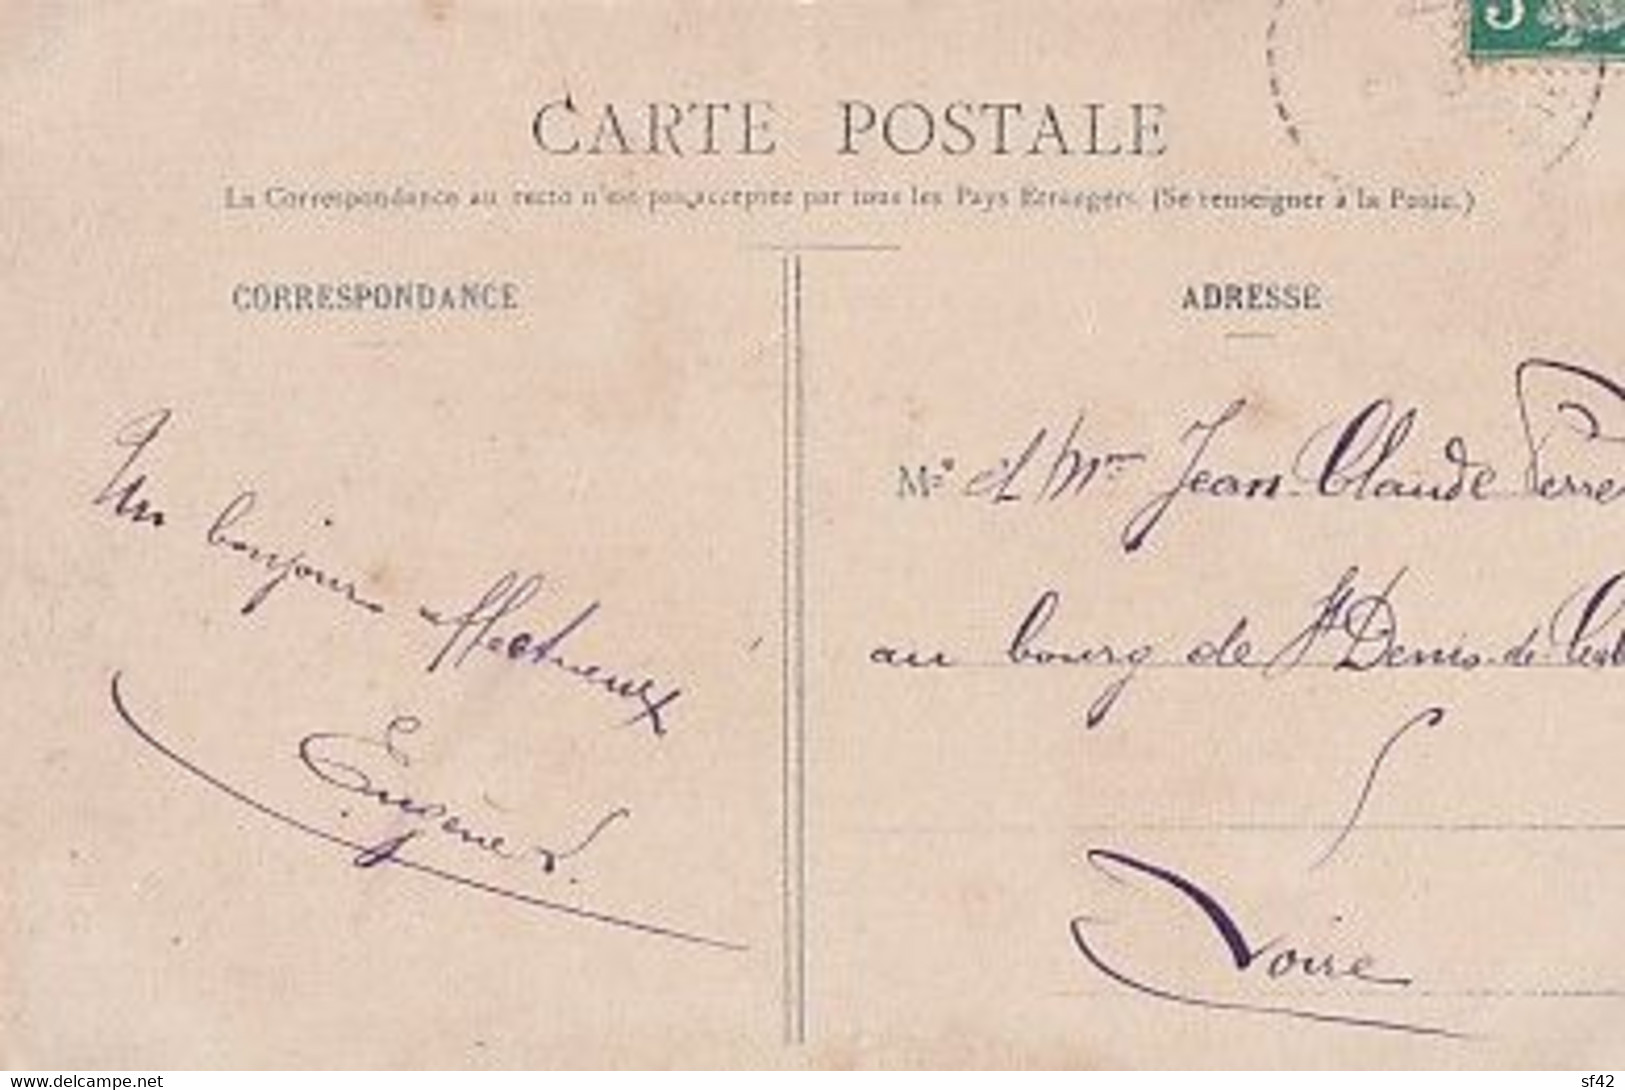 5
CARTE POSTALE
La Correspondance au recto n'est pas acceptée par tous les Pays Etrangers. (Se renseigner à la Poste.)
CORRESPONDANCE
Un bonjour affectueux
Eugène
ADRESSE
Mr et Mme Jean Claude Perre
au bourg de St Denis-de
Loire
www.delcampe.net
sf42